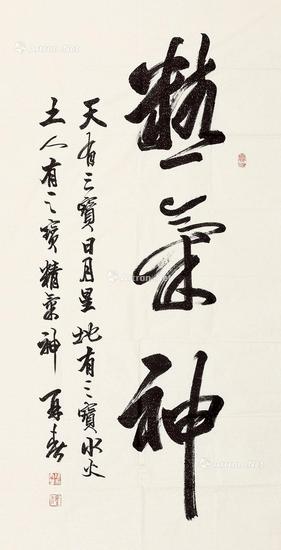 精氣神
天有三寶日月星地有三寶水火
土人有三寶精氣神 再春